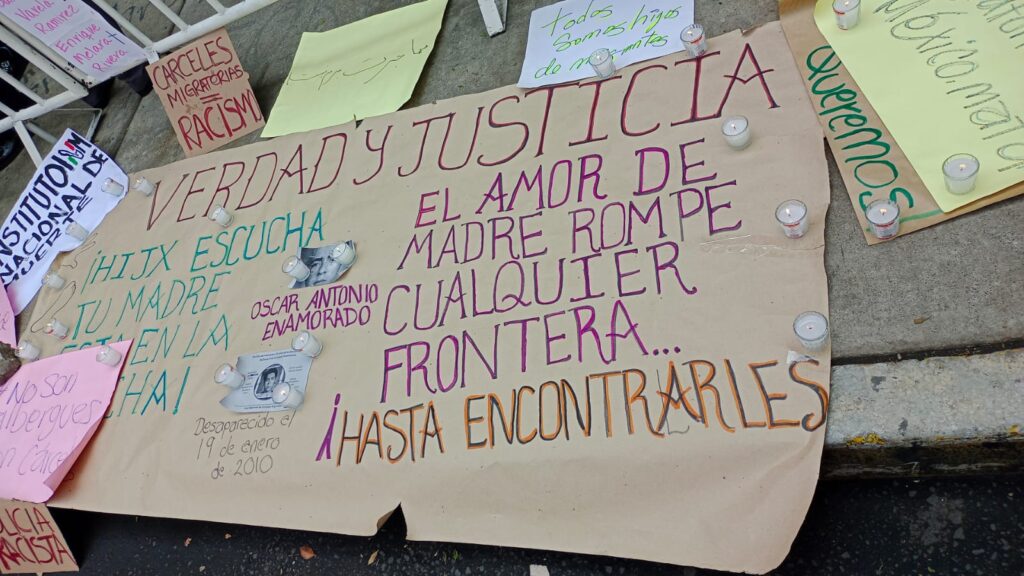 Varela
Ramirez
Enrique
Melara
Rivera
CARCELES
MIGRATORIAS
=
RACISM
todos
somos hijos
de
México, mata
Queremos
INSTITUTO
NACIONAL DE
VERDAD Y JUSTICIA
¡HIJX ESCUCHA
TU MADRE
ESTÁ EN LA
CHA!
OSCAR ANTONIO
ENAMORADO
Desaparecido el
19 de enero
de 2010
EL AMOR DE
MADRE ROMPE
CUALQUIER
FRONTERA...
¡HASTA ENCONTRARLES
No son
albergues
son Carce
OLICIA
RACISTA